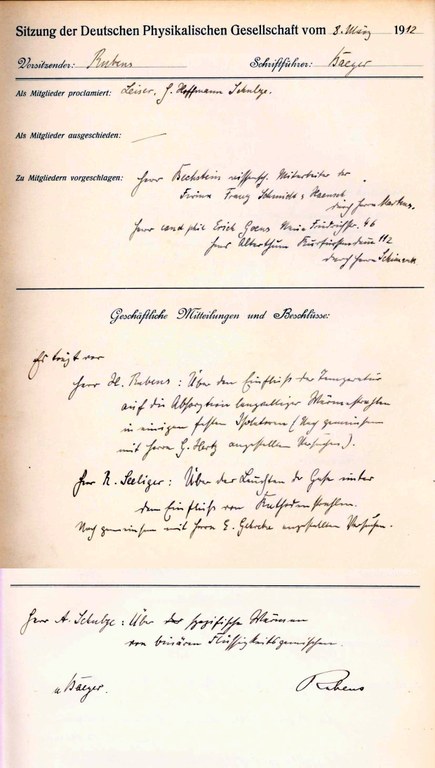 Sitzung der Deutschen Physikalischen Gesellschaft vom 8. März 1912
Vorsitzender: Rubens Schriftführer: Baeger
Als Mitglieder proclamiert: Leiser, G. Hoffmann Schulze.
Als Mitglieder ausgeschieden: —
Zu Mitgliedern vorgeschlagen: Herr Bechstein wissensch. Mitarbeiter der
Firma Franz Schmidt & Haensch
durch Herrn Martens.
Herr cand phil Erich Goens Friedrichstr. 46
Herr Alberthum Kurfürstendamm 112
durch Herrn
Geschäftliche Mitteilungen und Beschlüsse:
Es trägt vor
Herr H. Rubens: Über den Einfluß der Temperatur
auf die Absorption langwelliger Wärmestrahlen
in einigen festen Isolatoren (Nach gemeinsam
mit Herrn G. Hertz angestellten Versuchen).
Herr R. Seeliger: Über das Leuchten der Gase unter
dem Einfluß von Kathodenstrahlen.
Nach gemeinsam mit Herrn E. Gehrcke angestellten Versuchen.
Herr A. Schulze: Über die spezifische Wärmen
von binären Flüssigkeitsgemischen.
Baeger. Rubens